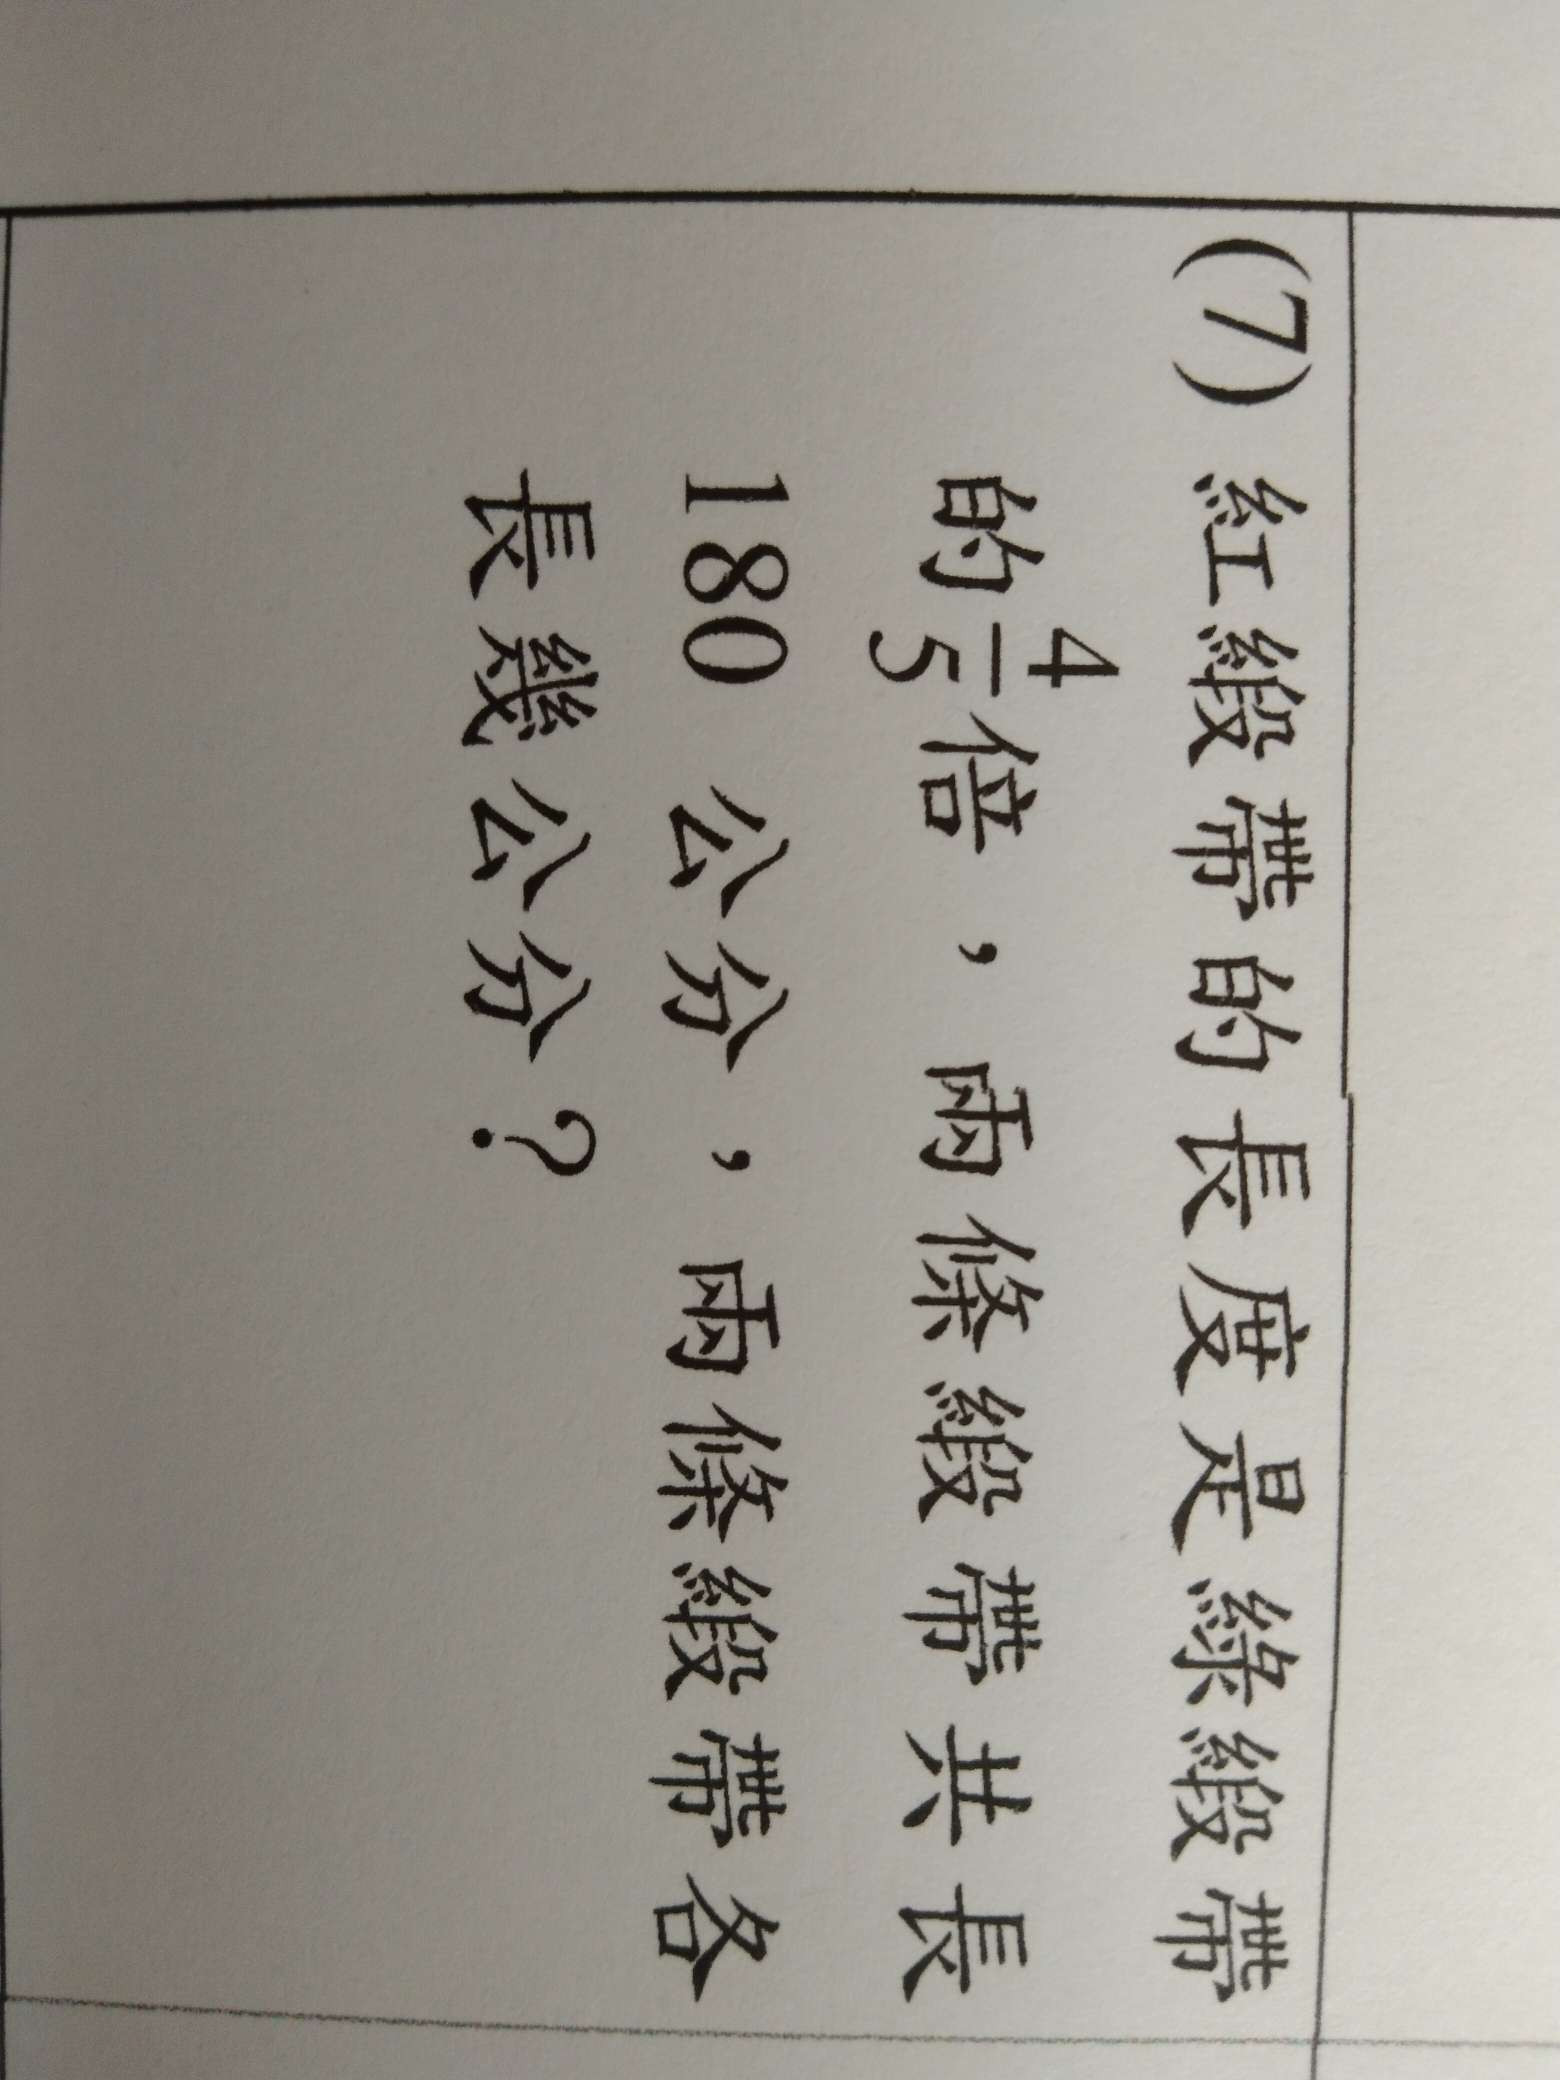 (7) 紅緞帶的長度是綠緞帶
的4/5倍，兩條緞帶共長
180 公分，兩條緞帶各
長幾公分？